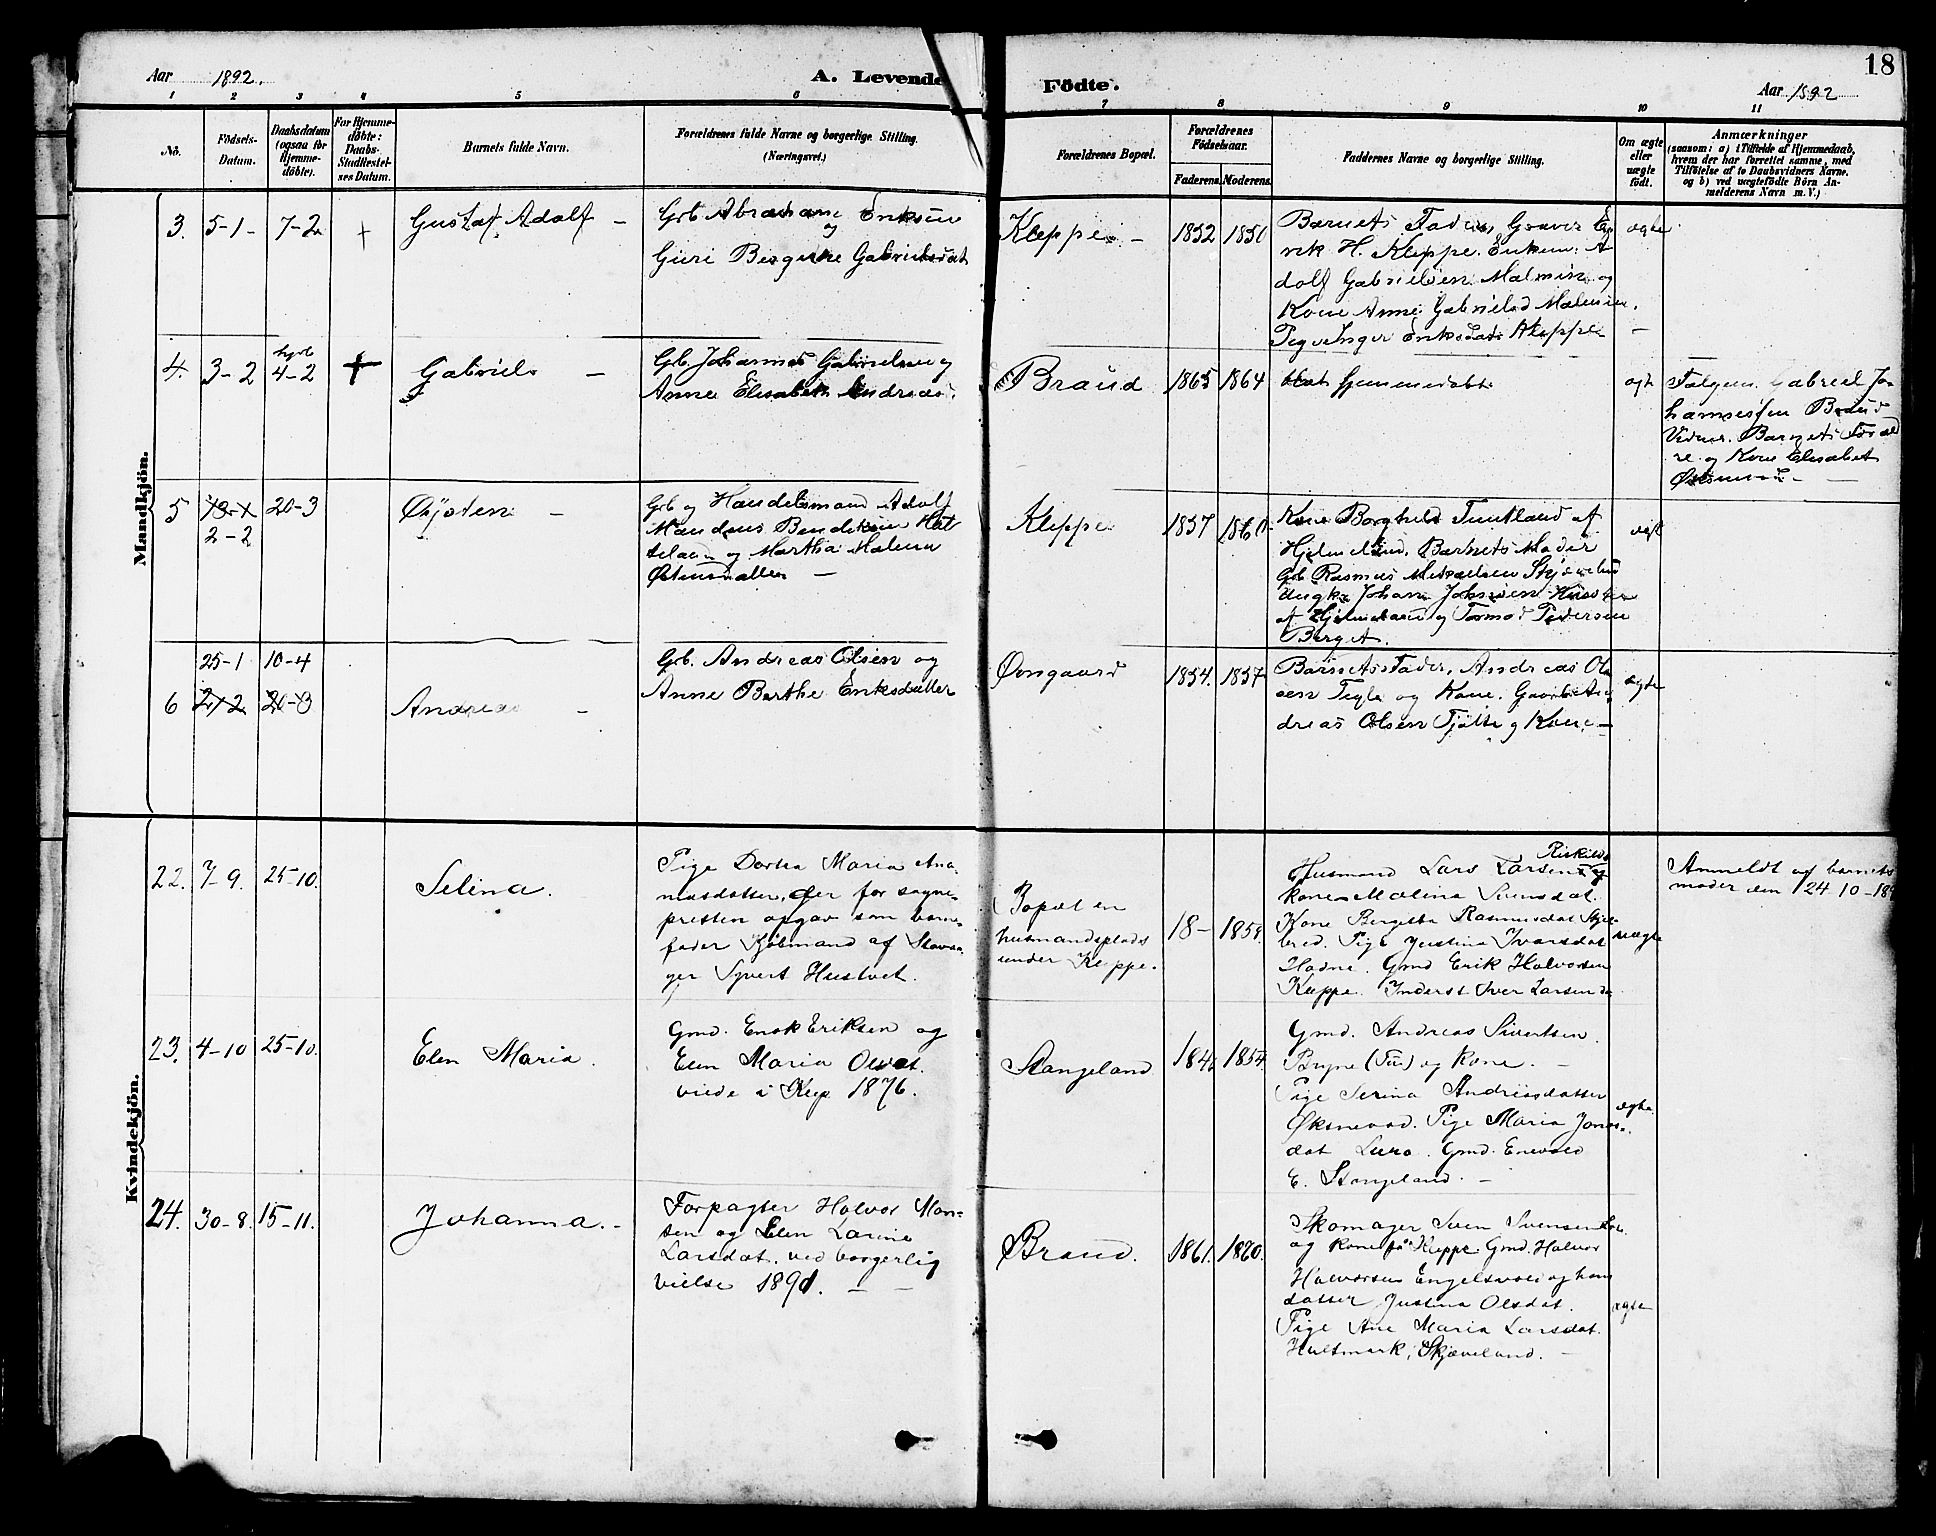 18
Aar 1892.
A. Levende Fødte.
Aar 1892
1 2 3 4 5 6 7 8 9 10 11
No.
Fødsels-
Datum.
Daabsdatum
(ogsaa for
Hjemme-
døbte).
For Hjemme-
døbte:
Daabs-
Stadfæstel-
ses Datum.
Barnets fulde Navn.
Forældrenes fulde Navne og borgerlige Stilling.
(Næringsvei.)
Forældrenes Bopæl.
Forældrenes
Fødselsaar.
Faderens.
Moderens.
Faddernes Navne og borgerlige Stilling.
Om ægte
eller
uægte
født.
Anmærkninger
(saasom: a) i Tilfælde af Hjemmedaab,
hvem der har forrettet samme, med
Tilføielse af to Daabsvidners Navne,
og b) ved uægtefødte Børn An-
melderens Navn m. V.)
Mandkjön.
3. 5-1- 7-2 +
Gustaf Adolf -
Grb. Abraham Eriksen
og
Guri Bergitte Gabrielsdat
Kleppe - 1852 1850
Barnets Fader, Graver E
rik H. Kleppe. Enkem. A
dolf Gabrielsen Malmin og
Kone Anne Gabrielsd Malmin.
Pige Inger Eriksdat Kleppe
ægte
4. 3-2
hjd
4-2 +
Gabriel -
Grb. Johannes Gabrielsen og
Anne Elisabeth Andreasd.
Braud 1865 1864
hjemmedøbt
ægt
Gabriel Jo-
hannessen Braud
Vidner. Barnets Foræld
re og Kone Elisabet
5 2-2 20-3
Øistein -
Grb og Handelsmand Adolf
Mandius Bendiksen Hat
teland og Martha Malena
Østensdatter -
Kleppe 1857 1860
Kone Borghild Tuntland af
Hjelmeland. Barnets Moder
Grb Rasmus
Ungk. Johan Johnsen
af Hjelmeland og Tormod Pedersen
Berget.
ægt
25-1 10-4
6 2-2 20-3
Andreas -
Grb. Andreas Olsen og
Anne Berthe Eriksdatter
Orsgaard 1854. 1857
Barnets Fader, Andreas Ol
sen Tegle og Kone. Gaardb An
dreas Olsen Tjøtta og Kone -
ægte
Kvindekjön.
22. 7-9. 25-10.
Selina.
Pige Dortea Maria Ana-
niasdatter, der for sogne-
presten opgav som barne-
fader Kjøbmand af Stavan-
ger Syvert Hustvet.
Bopæl en
husmandsplads
under Kleppe.
18- 1858.
Riskild
Husmand Lars Larsen og
kone Malina Svensdat.
Kone Bergitta Rasmusdat Skjel-
bred. Pige Justina Ivarsdat
Hadne. Gmd Erik Halvorsen
Kleppe. Inderst Iver Larsen do
uægte
Anmeldt af barnets
moder den 24 10-189
23. 4-10 25-10.
Elen Maria.
Gmd. Enok Eriksen og
Elen Maria Olsdat.
viede i Klep 1876.
Stangeland 1846 1854.
Gmd. Andreas Sivertsen
Bryne (Tu) og kone. -
Pige Serina Andreasdatter
Øksnevad. Pige Maria Jonas-
dat Lura. Gmd. Enevald
E. Stangeland. -
ægte.
24. 30-8. 15-11.
Johanna. -
Forpagter Halvor Mon-
sen og Elen Larine
Larsdat. ved borgerlig
vielse 1891. - -
Braud. 1861. 1870.
Skomager Sven Svensen
og kone på Kleppe. Gmd. Halvor
Halvorsen Engelsvold og hans
datter Justina Olsdat.
Pige Ane Maria Larsdat.
Hultmark, Skjæveland. -
ægte